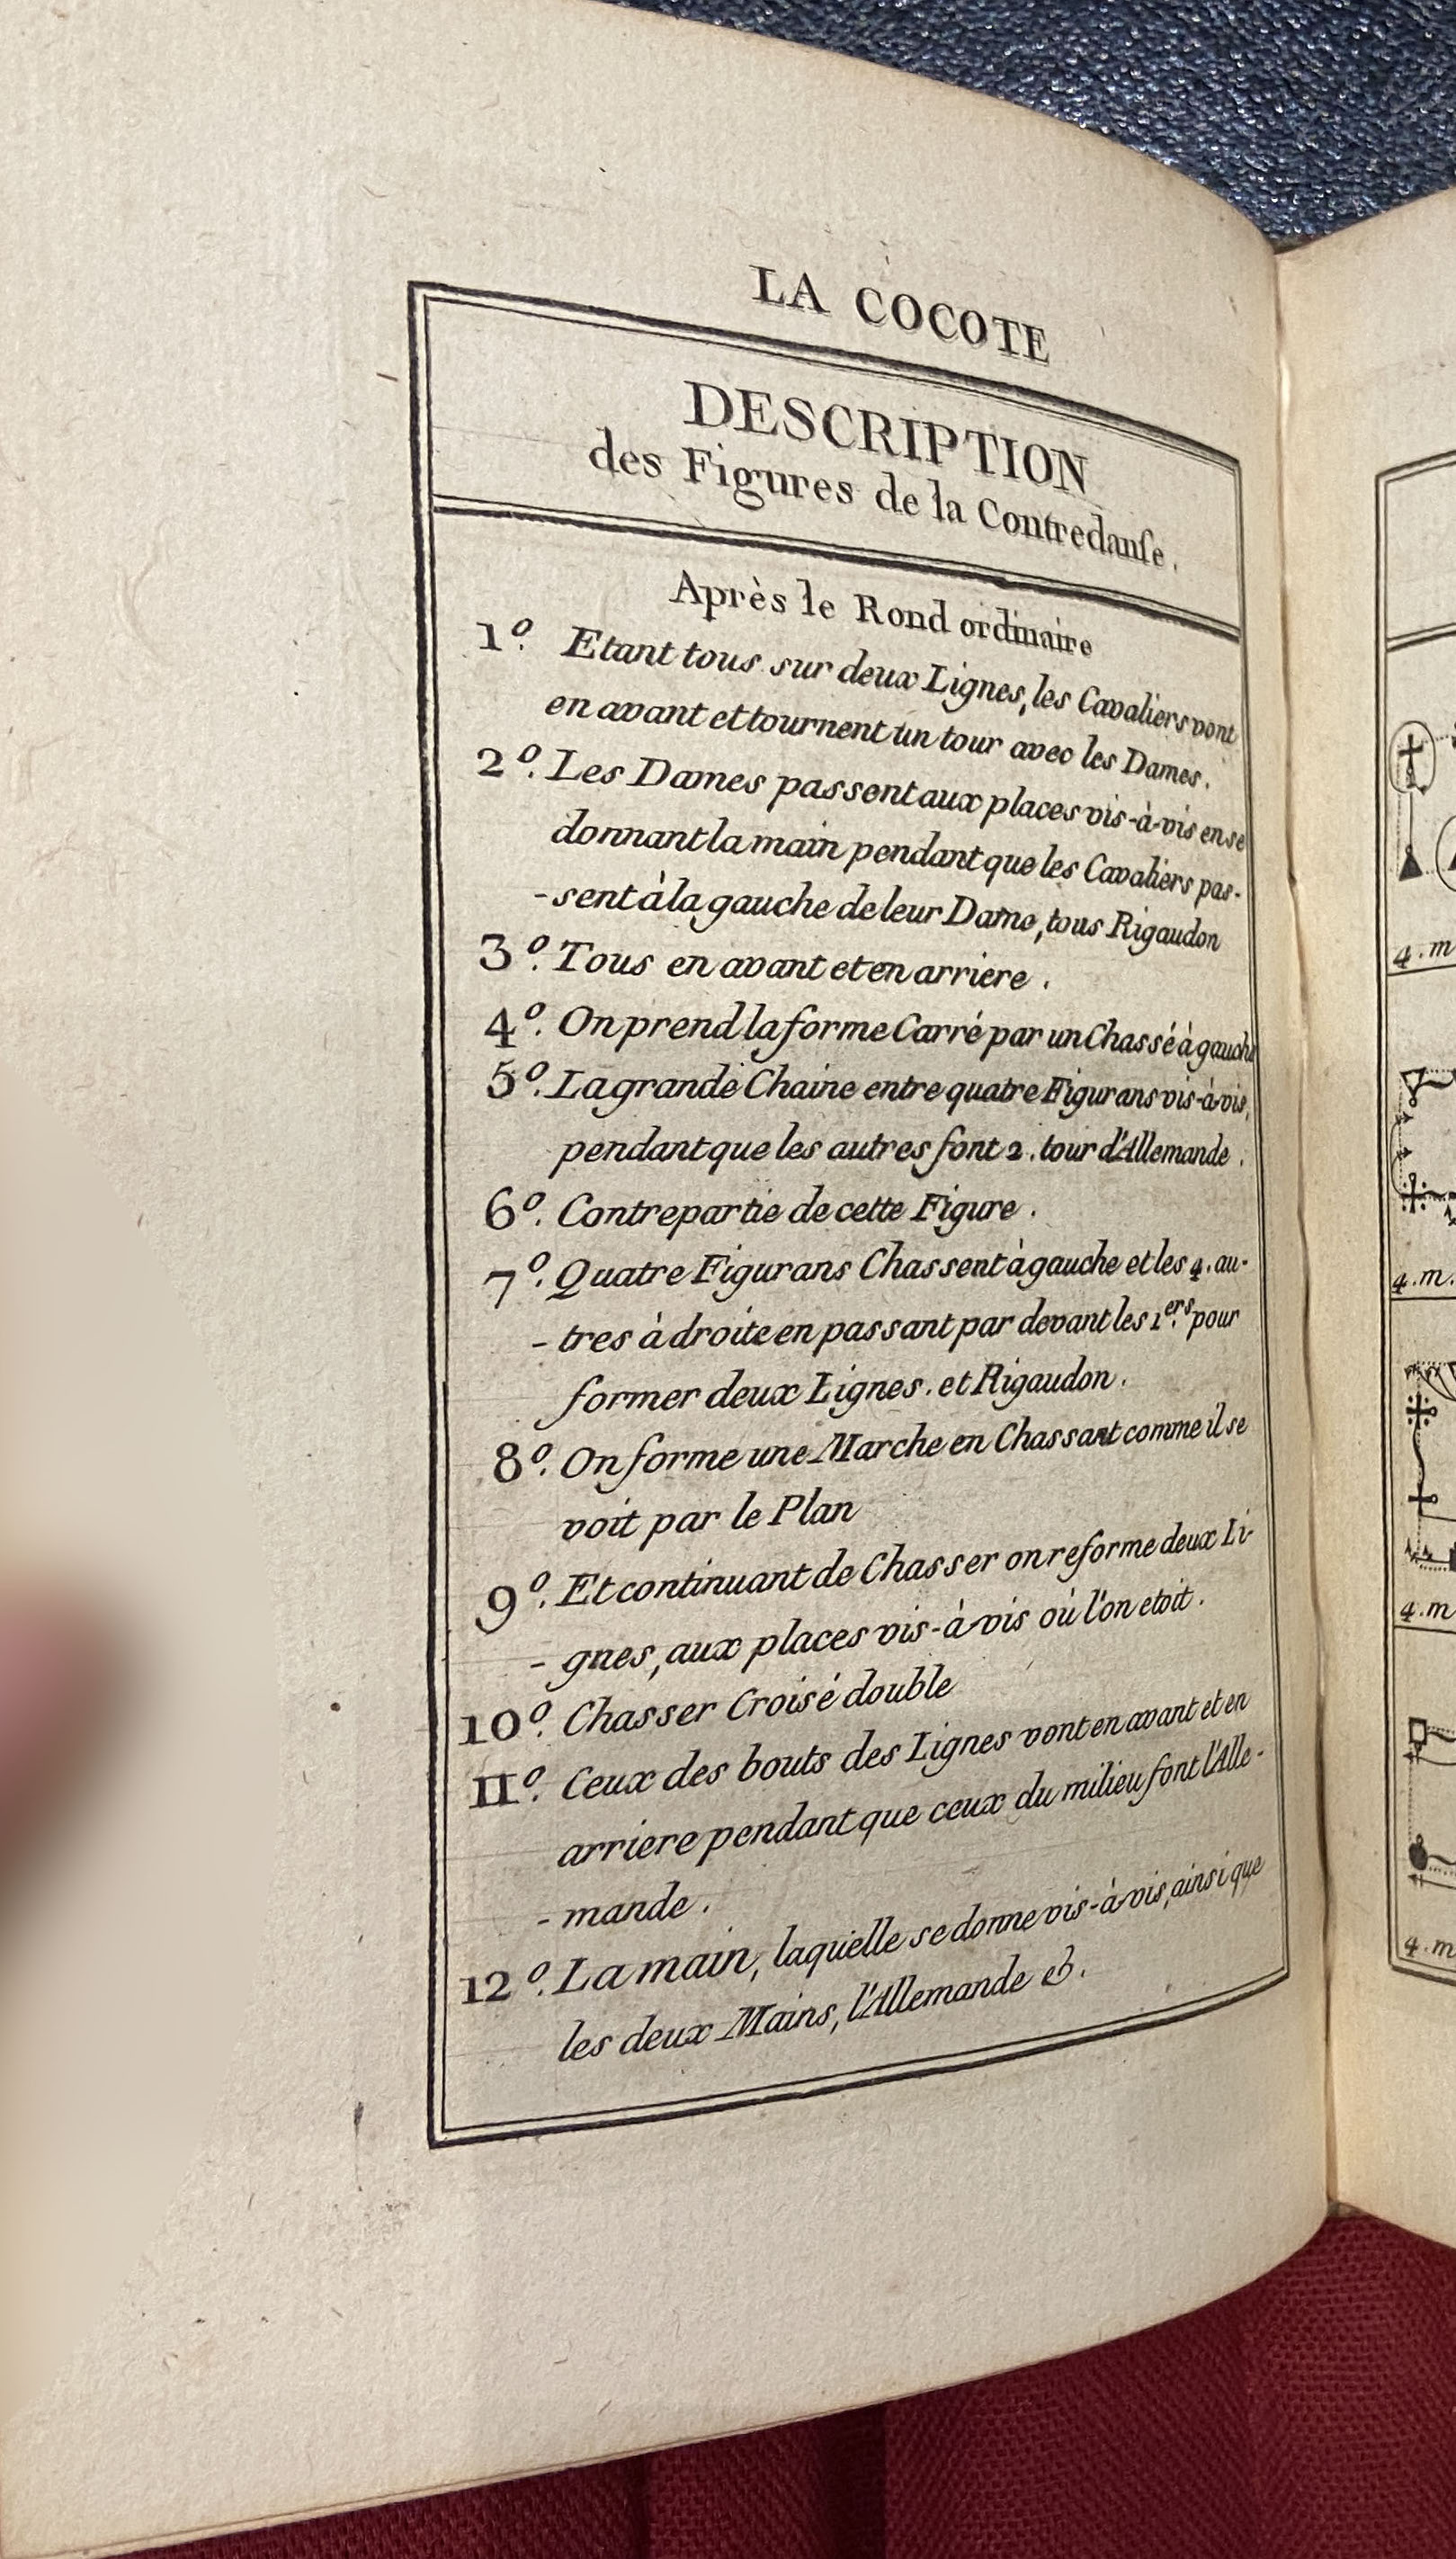 LA COCOTE
DESCRIPTION
des Figures de la Contredanſe.
Après le Rond ordinaire
1º. Etant tous sur deux Lignes, les Cavaliers vont
en avant et tournent un tour avec les Dames.
2º. Les Dames passent aux places vis-à-vis en se
donnant la main pendant que les Cavaliers pas-
-sent à la gauche de leur Dame, tous Rigaudon
3º. Tous en avant et en arriere.
4º. On prend la forme Carré par un Chassé à gauche
5º. La grande Chaine entre quatre Figurans vis-à-vis,
pendant que les autres font 2. tour d'Allemande.
6º. Contrepartie de cette Figure.
7º. Quatre Figurans Chassent à gauche et les 4. au-
-tres à droite en passant par devant les 1.ers pour
former deux Lignes. et Rigaudon.
8º. On forme une Marche en Chassant comme il se
voit par le Plan
9º. Et continuant de Chasser on reforme deux Li-
-gnes, aux places vis-à-vis où l'on etoit.
10º. Chasser Croisé double
11º. Ceux des bouts des Lignes vont en avant et en
arriere pendant que ceux du milieu font l'Alle-
-mande.
12º. La main, laquelle se donne vis-à-vis, ainsi que
les deux Mains, l'Allemande &.
4.m
4.m.
4.m
4.m